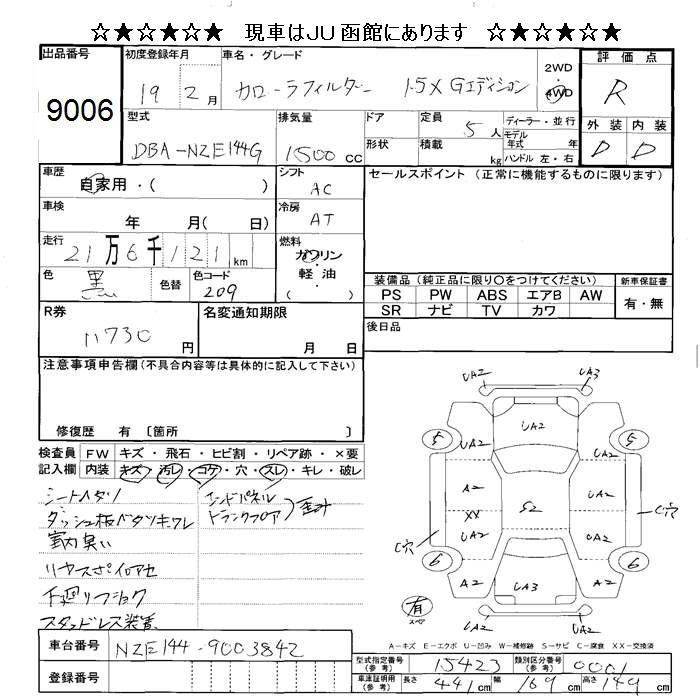 ☆★☆★☆★ 現車はJU函館にあります ☆★☆★☆★
出品番号 初度登録年月 車名・グレード 2WD 評価点
9006 19 2月 カローラフィルダー 1.5X Gエディション 4WD R
型式 排気量 ドア 定員 ディーラー・並行 外装 内装
DBA-NZE144G 1500cc 5人 モデル年式 年 D D
形状 積載 kg ハンドル 左・右
車歴 シフト セールスポイント (正常に機能するものに限ります)
自家用・( ) AC
車検 冷房
年 月( 日) AT
走行 燃料
21万6千121km ガソリン・軽油
色 色替 色コード ( )
黒 209
装備品 (純正品に限り○をつけてください) 新車保証書
PS PW ABS エアB AW 有・無
SR ナビ TV カワ
R券 名変通知期限 後日品
11730円 月 日
注意事項申告欄(不具合内容等は具体的に記入して下さい)
修復歴 有 〔箇所 〕
検査員 FW キズ・飛石・ヒビ割・リペア跡・×要
記入欄 内装 キズ・汚レ・コゲ・穴・スレ・キレ・破レ
シートヘタリ エンドパネル
ダッシュ板ベタツキワレ トランクフロア 歪み
室内臭い
下廻リフショク
スタッドレス装着
UA2 UA3
UA2
5 UA2 UA2 5
A2 A2
XX S2 C穴
C穴 UA2 UA2
6 A2 UA3 A2 6
有 スペア UA2 UA2
A-キズ E-エクボ U-凹み W-補修跡 S-サビ C-腐食 XX-交換済
車台番号 NZE144-9003842
登録番号
型式指定番号(参考) 15423 類別区分番号(参考) 0001
車庫証明用(参考) 長さ 441cm 幅 169cm 高さ 149cm